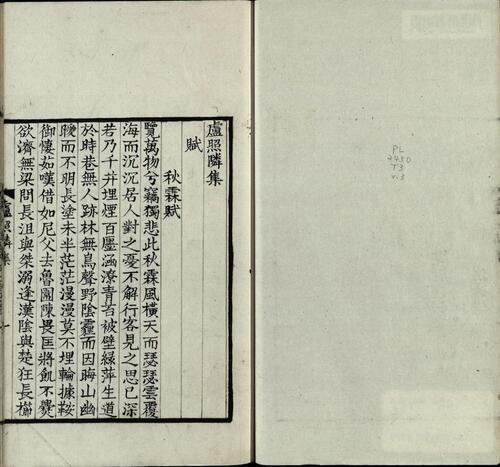 盧照鄰集
賦
秋霖賦
覽萬物兮竊獨悲此秋霖風橫天而瑟瑟雲覆
海而沉沉居人對之憂不解行客見之思已深
若乃千井埋煙百廛涵潦青苔被壁綠萍生道
於時巷無人跡林無鳥聲野陰霾而因晦山幽
曖而不明長塗未半茫茫漫漫莫不埋輪據鞍
御悽茹嘆借如尼父去魯圍陳畏匡將飢不爨
欲濟無梁問長沮與桀溺逢漢陰與楚狂長櫛
盧照鄰集
一
PL
2450
T3
v.3